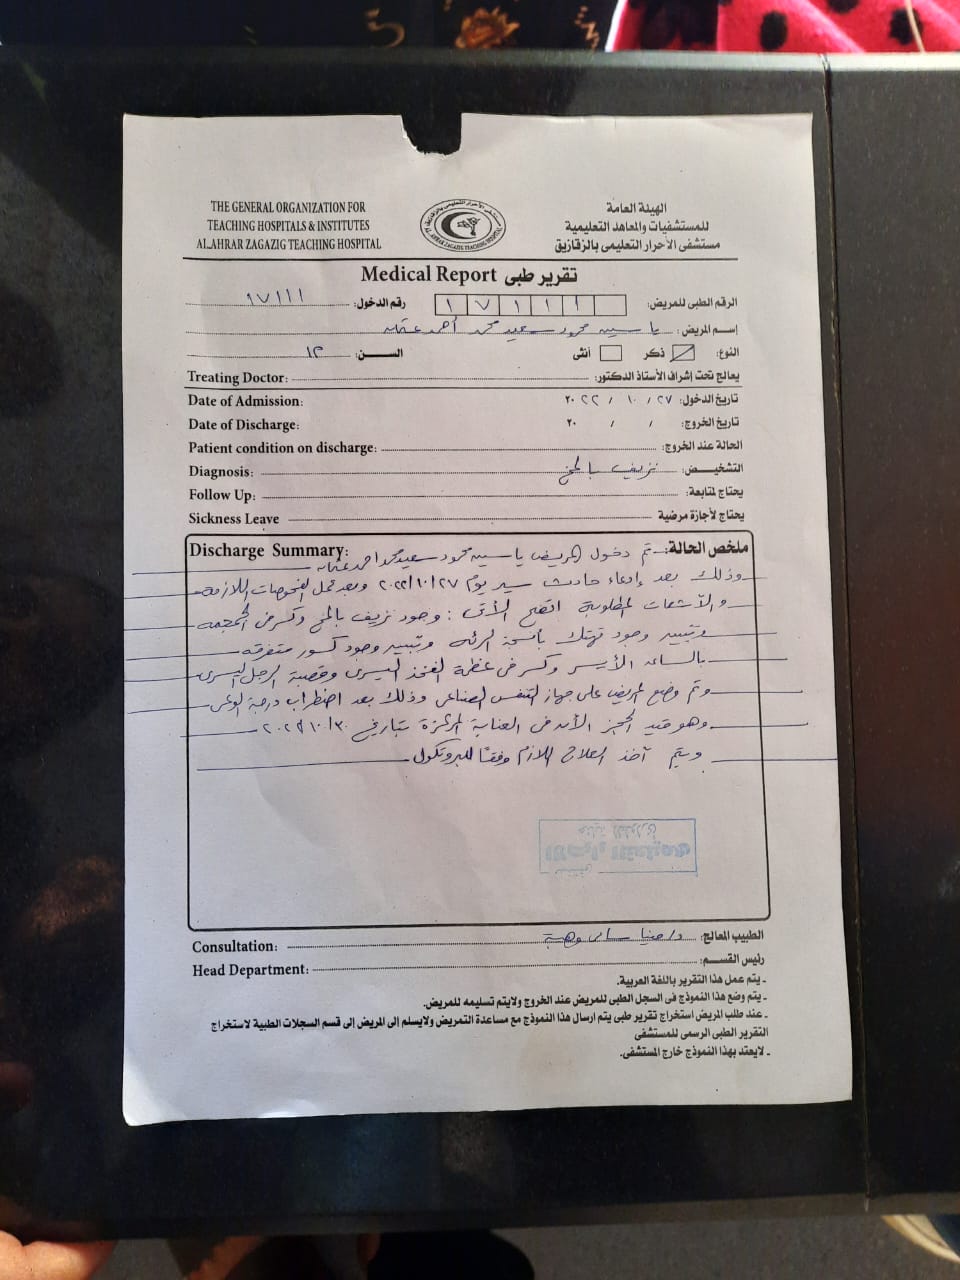 THE GENERAL ORGANIZATION FOR
TEACHING HOSPITALS & INSTITUTES
AL.AHRAR ZAGAZIG TEACHING HOSPITAL
الهيئة العامة
للمستشفيات والمعاهد التعليمية
مستشفى الأحرار التعليمى بالزقازيق
Medical Report تقرير طبى
الرقم الطبى للمريض: ١٧١١١ رقم الدخول: ١٧١١١
إسم المريض: ياسين محمود سعيد محمد أحمد عثمان
النوع: ذكر أنثى السن: ١٣
Treating Doctor: يعالج تحت إشراف الأستاذ الدكتور:
Date of Admission: تاريخ الدخول: ٢٧ / ١٠ / ٢٠٢٢
Date of Discharge: تاريخ الخروج: / / ٢٠
Patient condition on discharge: الحالة عند الخروج:
Diagnosis: التشخيص: نزيف بالمخ
Follow Up: يحتاج لمتابعة:
Sickness Leave يحتاج لأجازة مرضية
Discharge Summary: ملخص الحالة: تم دخول المريض ياسين محمود سعيد محمد احمد عثمان
وذلك بعد إدعاء حادث سير يوم ٢٠٢٢/١٠/٢٧ وبعد عمل الفحوصات اللازمة
والأشعات المطلوبة اتضح الأتى : وجود نزيف بالمخ وكسر فى الجمجمة
وتبين وجود تهتك بأنسجة الرئة وتبين وجود كسور متفرقة
بالساعد الأيسر وكسر فى عظمة الفخذ اليسرى وقصبة الرجل اليسرى
وتم وضع المريض على جهاز التنفس الصناعى وذلك بعد اضطراب درجة الوعى
وهو قيد الحجز الأن فى العناية المركزة بتاريخ ٢٠٢٢/١٠/٣٠
ويتم أخذ العلاج اللازم وفقاً للبروتكول
Consultation: الطبيب المعالج: د/ مينا سامى وهبة
Head Department: رئيس القسم:
ـ يتم عمل هذا التقرير باللغة العربية.
ـ يتم وضع هذا النموذج فى السجل الطبى للمريض عند الخروج ولايتم تسليمه للمريض.
ـ عند طلب المريض استخراج تقرير طبى يتم ارسال هذا النموذج مع مساعدة التمريض ولايسلم إلى المريض إلى قسم السجلات الطبية لاستخراج
التقرير الطبى الرسمى للمستشفى
ـ لايعتد بهذا النموذج خارج المستشفى.